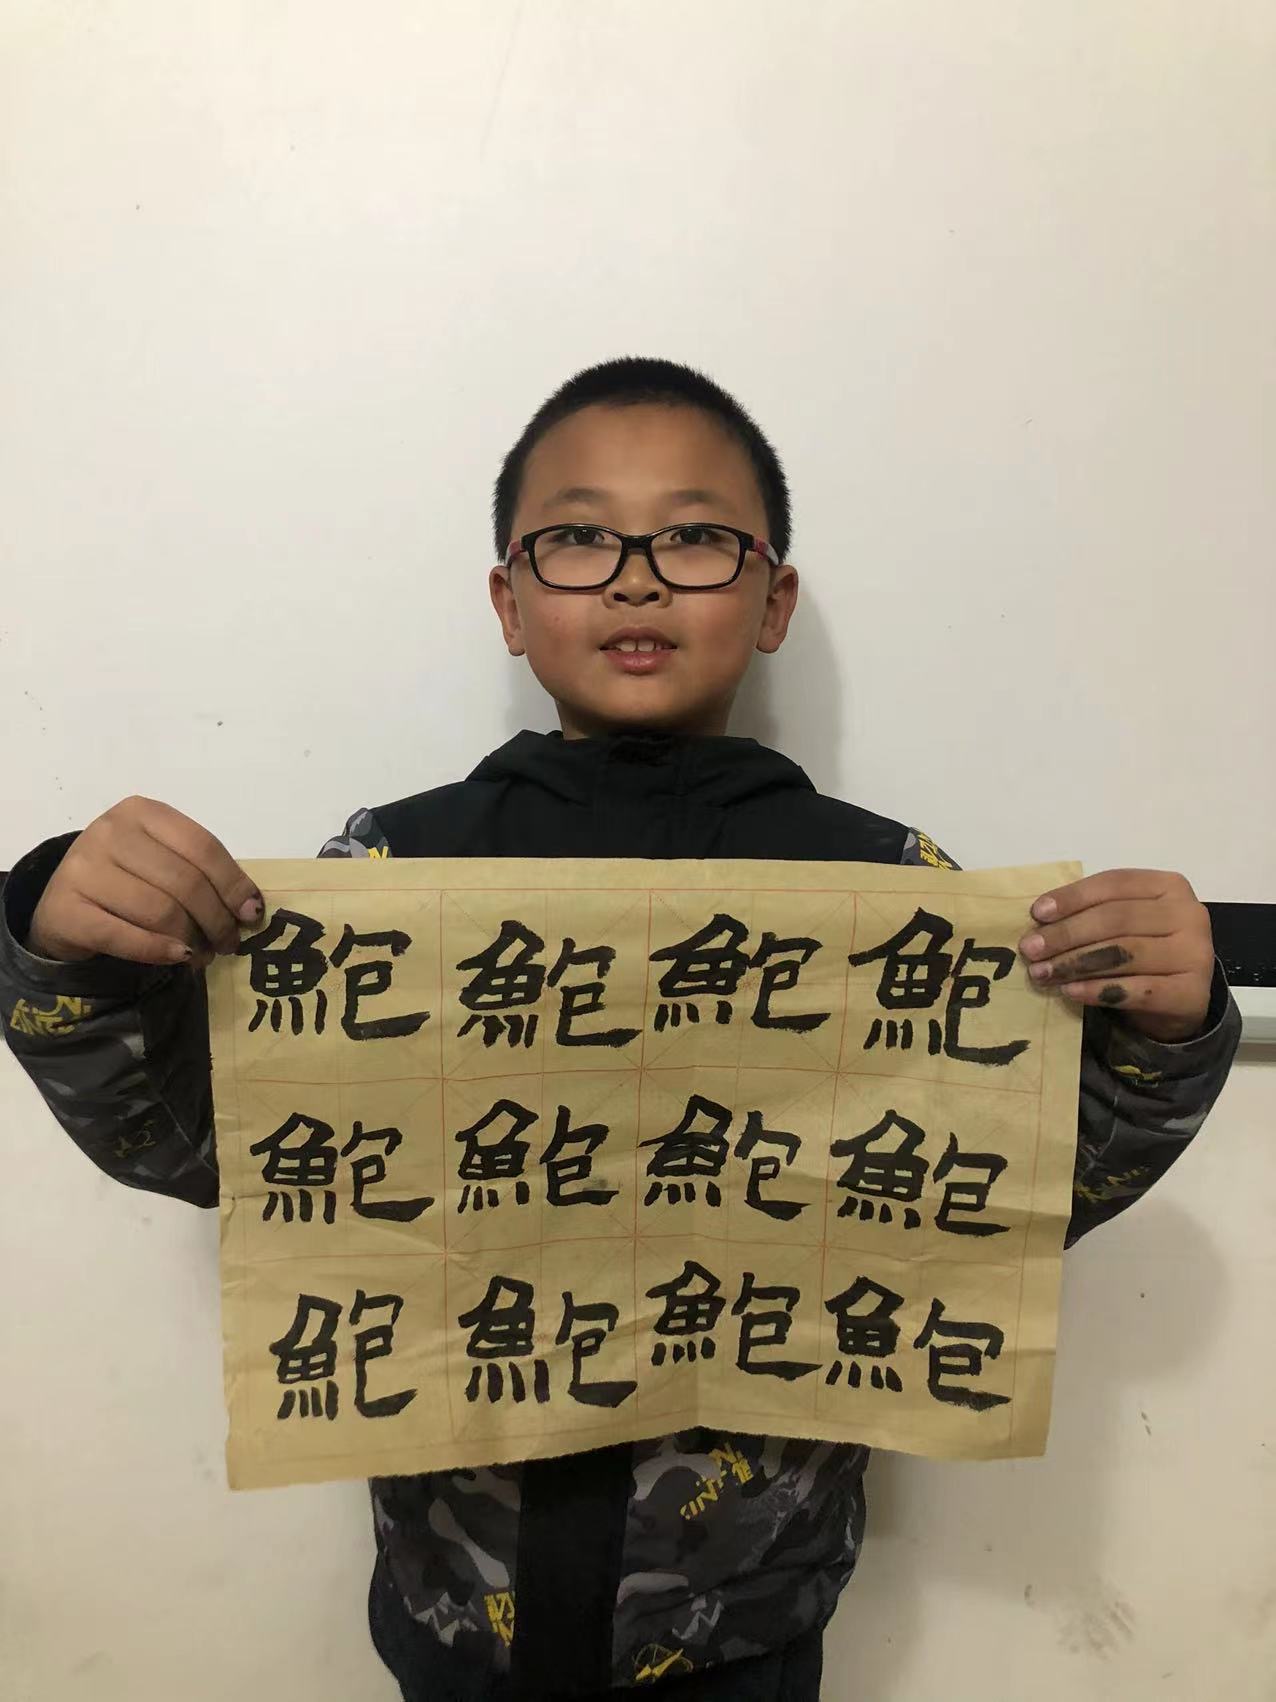 鮑鮑鮑鮑
鮑鮑鮑鮑
鮑鮑鮑鮑